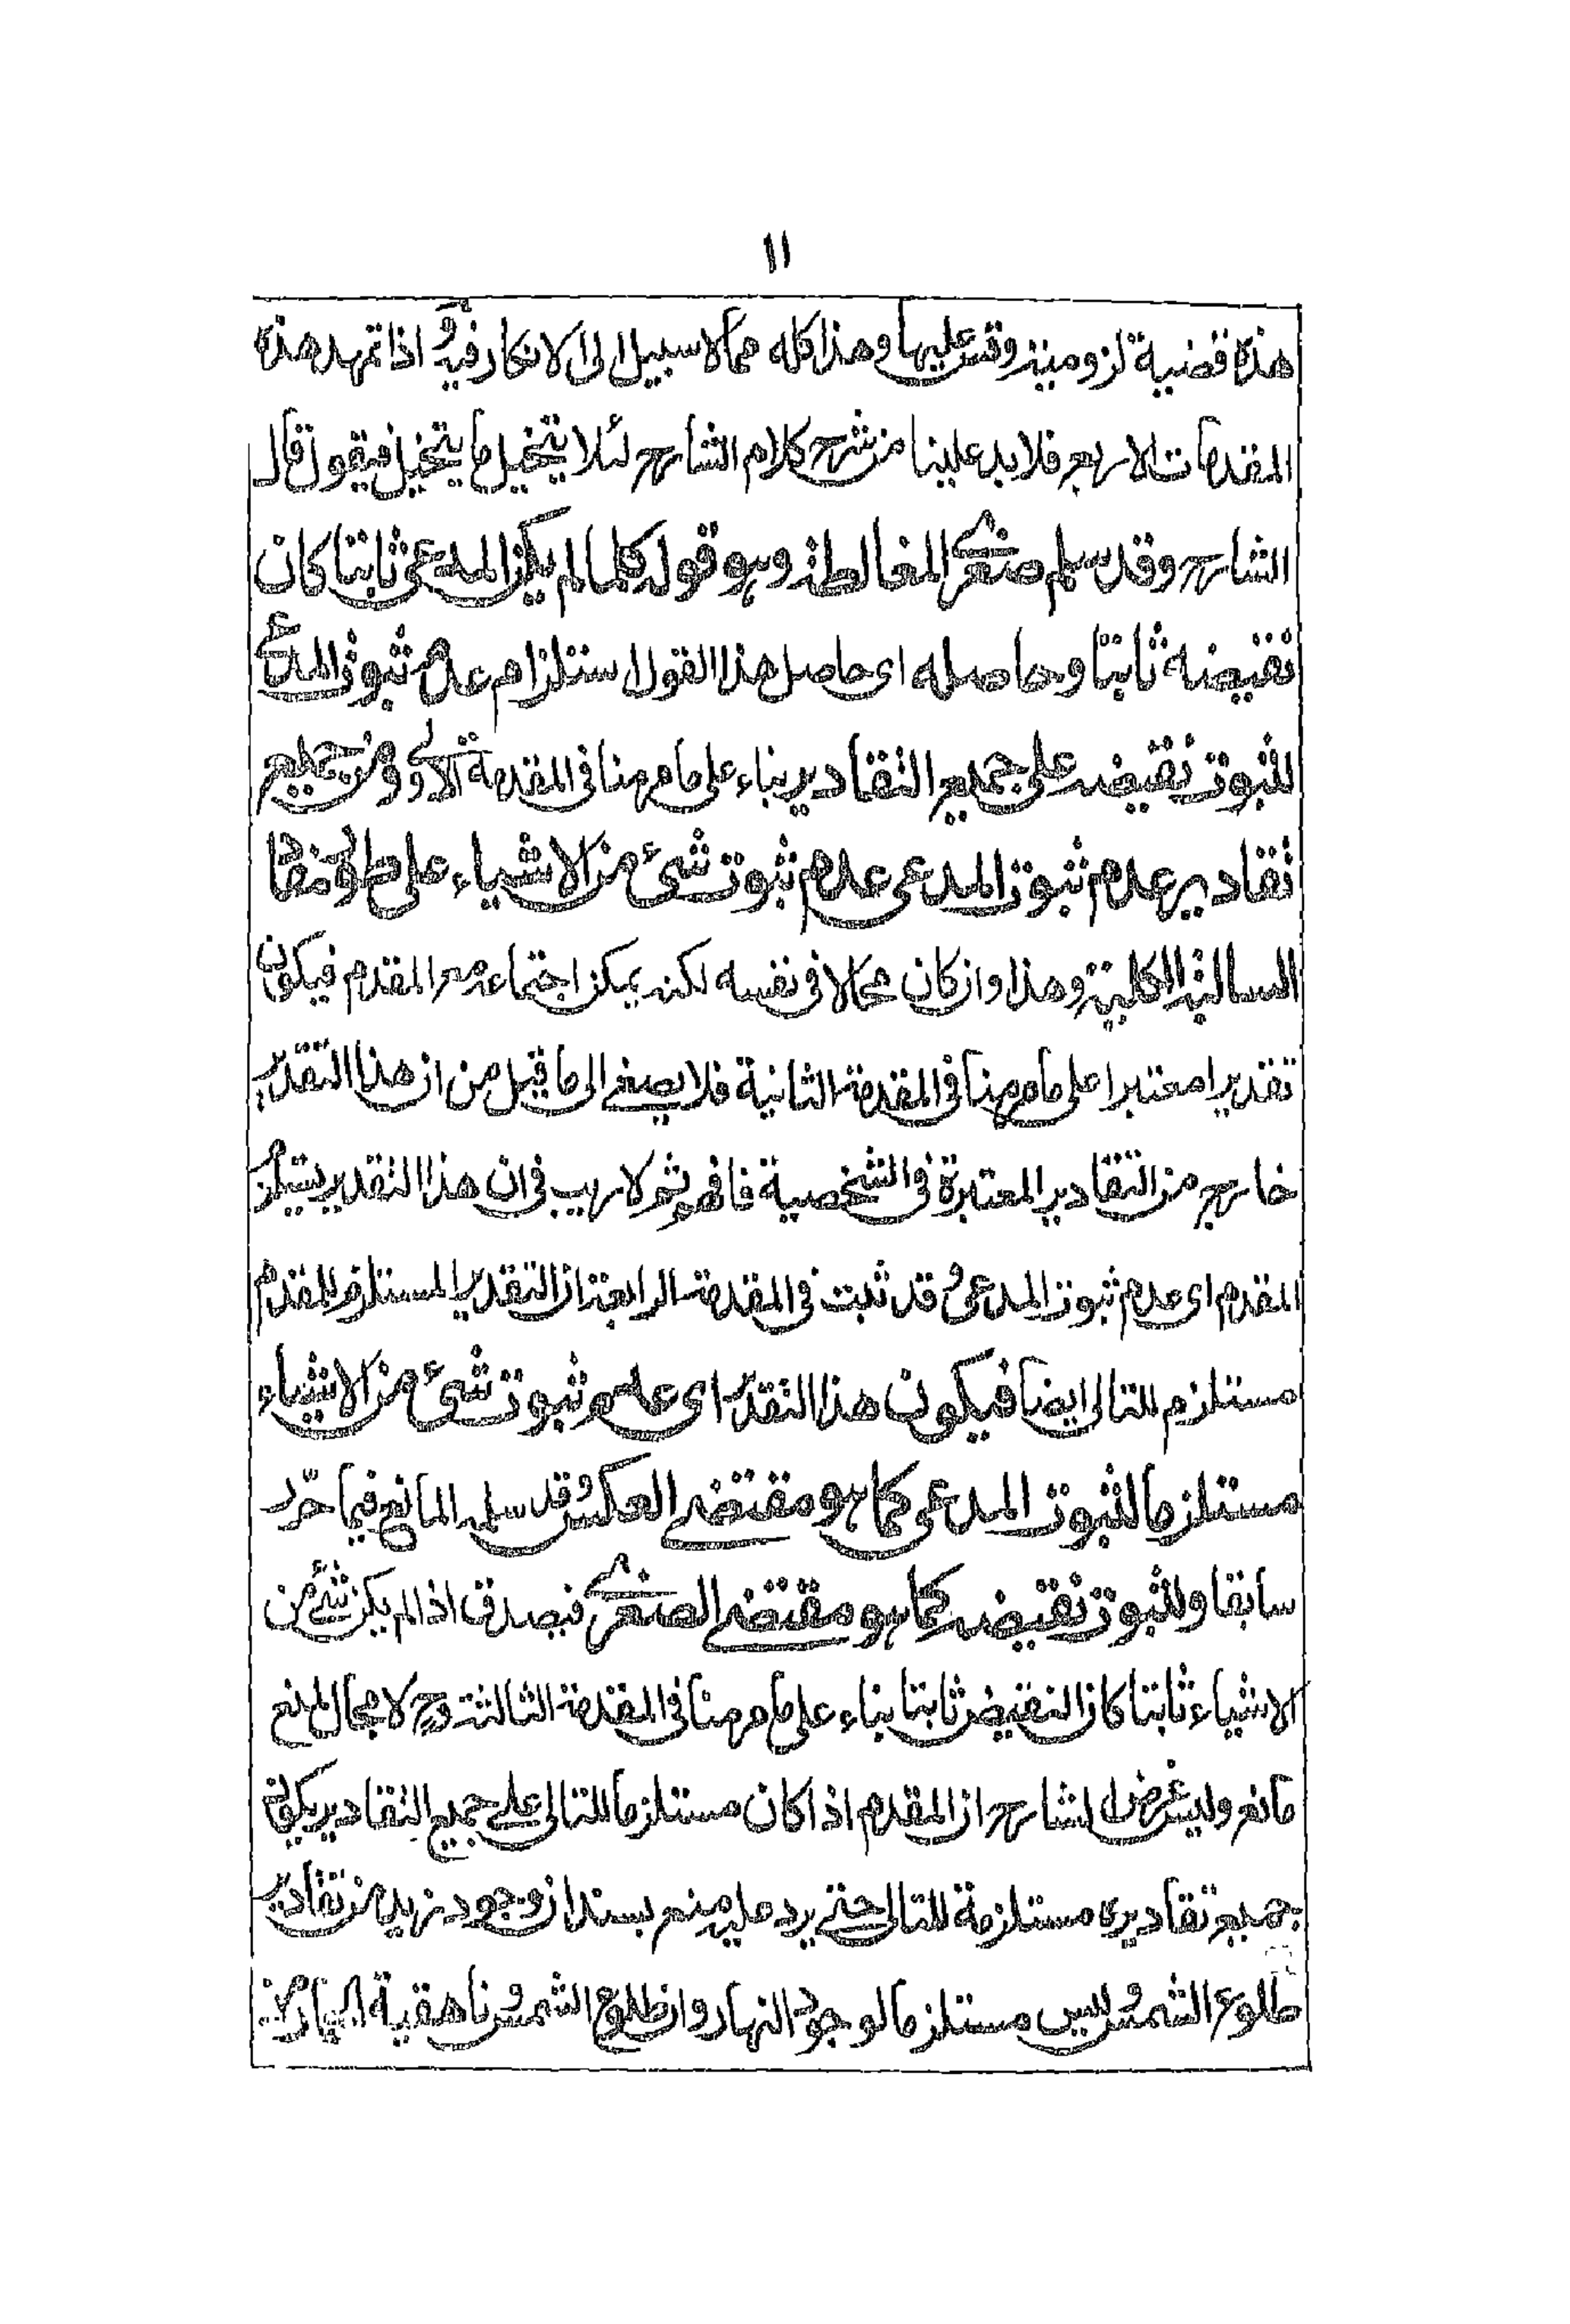 ١١
هذه قضية لزومية وقس عليها وهذا كله مما لا سبيل الى الانكار فيه و اذا تمهد هذه
المقدمات الاربعة فلا بد علينا من شرح كلام الشارح لئلا يتخيل ما يتخيل فيقول قال
الشارح وقد سلم صغرى المغالطة وهو قوله كلما لم يكن المدعى ثابتا كان
نقيضه ثابتا وحاصله اى حاصل هذا القول استلزام عدم ثبوت المدعى
لثبوت نقيضه على جميع التقادير بناء على ما مهدنا فى المقدمة الاولى ومن جميع
تقادير عدم ثبوت المدعى عدم ثبوت شئ من الاشياء على طريق
السالبة الكلية وهذا وان كان محالا فى نفسه لكنه يمكن اجتماعه مع المقدم فيكون
تقديرا معتبرا على ما مهدنا فى المقدمة الثانية فلا يصغى الى ما قيل من ان هذا التقدير
خارج من التقادير المعتبرة فى الشخصية فافهم ثم لا ريب فى ان هذا التقدير يستلزم
المقدم اى عدم ثبوت المدعى و قد ثبت فى المقدمة الرابعة ان التقدير المستلزم للمقدم
مستلزم للتالى ايضا فيكون هذا التقدير اى عدم ثبوت شئ من الاشياء
مستلزما لثبوت المدعى كما هو مقتضى العكس و قد سلمه المانع فيما حرّر
سابقا ولثبوت نقيضه كما هو مقتضى الصغرى فيصدق اذا لم يكن شئ من
الاشياء ثابتا كان النقيض ثابتا بناء على ما مهدنا فى المقدمة الثالثة وح لا مجال لمنع
مانع وليس غرض الشارح ان المقدم اذا كان مستلزما للتالى على جميع التقادير يكون
جميع تقاديره مستلزمة للتالى حتى يرد عليه منع بسند ان وجود زيد من تقادير
طلوع الشمس و ليس مستلزما لوجود النهار وان طلوع الشمس و ناهقية الحمار من